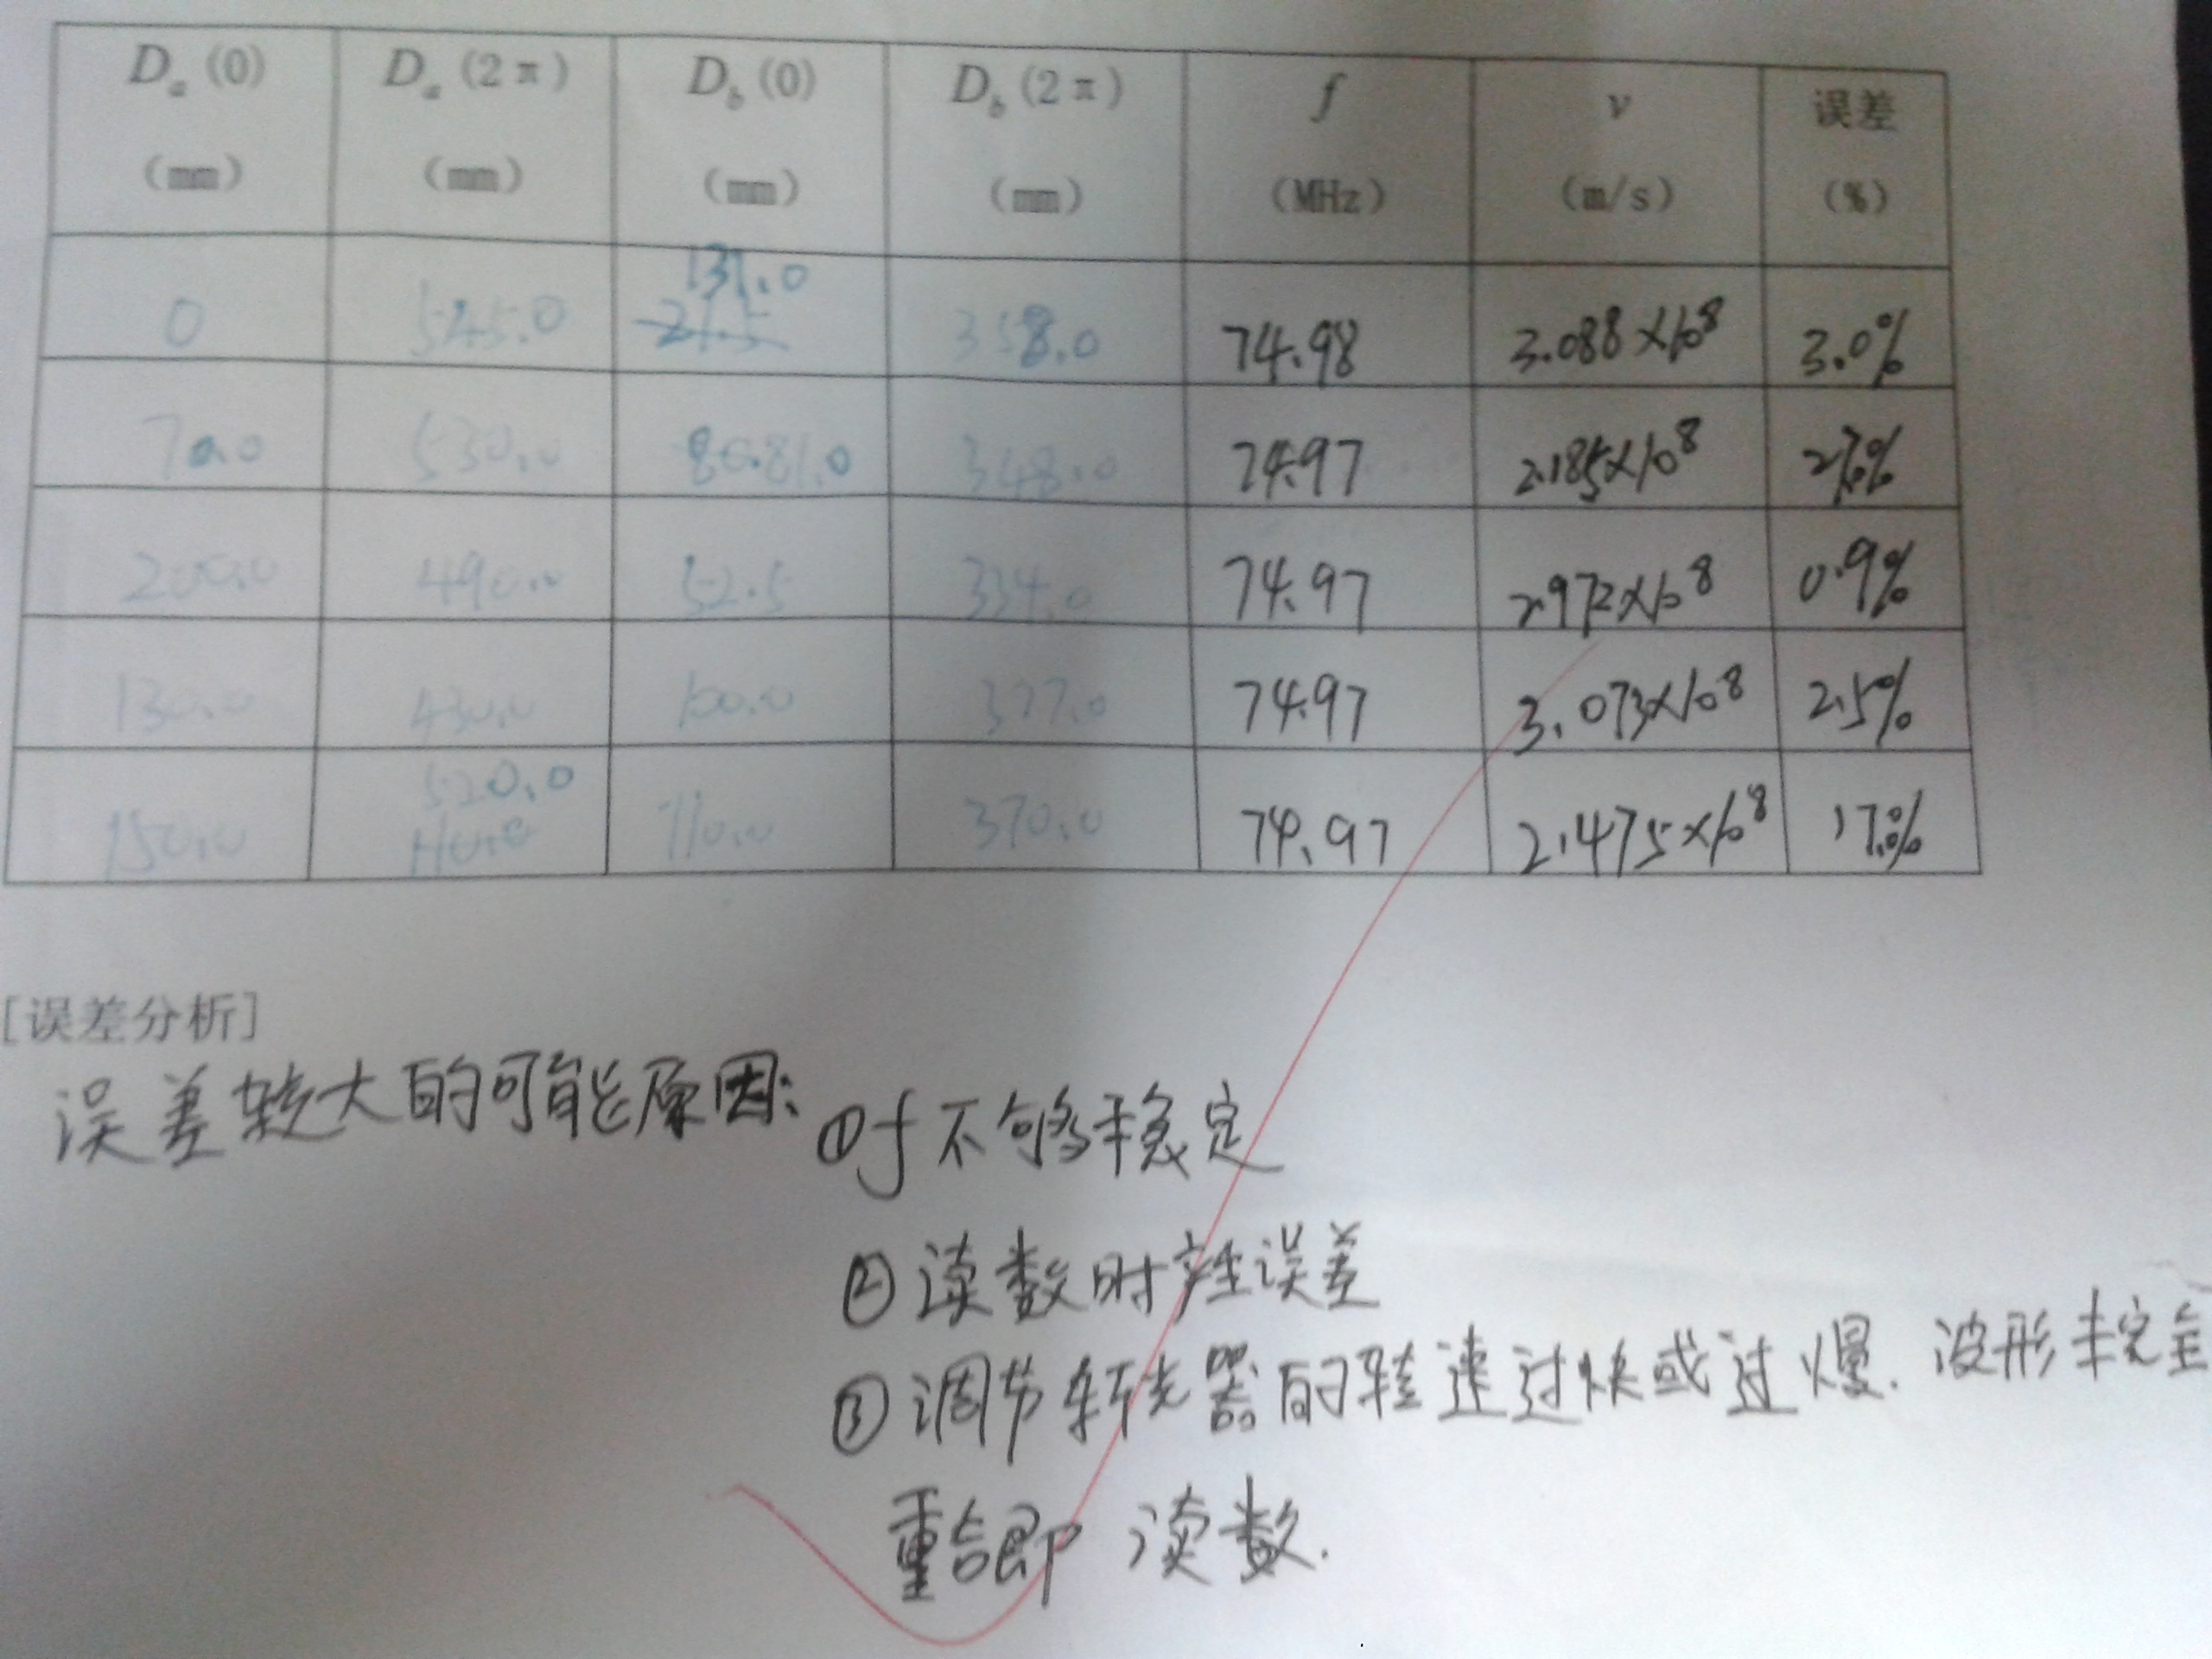 Da(0) Da(2π) Db(0) Db(2π) f v 误差
(mm) (mm) (mm) (mm) (MHz) (m/s) (%)
131.0
0 545.0 21.5 358.0 74.98 3.088×10⁸ 3.0%
70.0 530.0 81.0 348.0 74.97 2.185×10⁸
200.0 490.0 52.5 334.0 74.97 2.972×10⁸ 0.9%
130.0 430.0 100.0 377.0 74.97 3.073×10⁸ 2.5%
520.0
150.0 110.0 370.0 74.97 2.475×10⁸ 17.%
[误差分析]
误差较大的可能原因:①f不够稳定
②读数时产生误差
③调节转光器的转速过快或过慢.波形未完全
重合即读数.